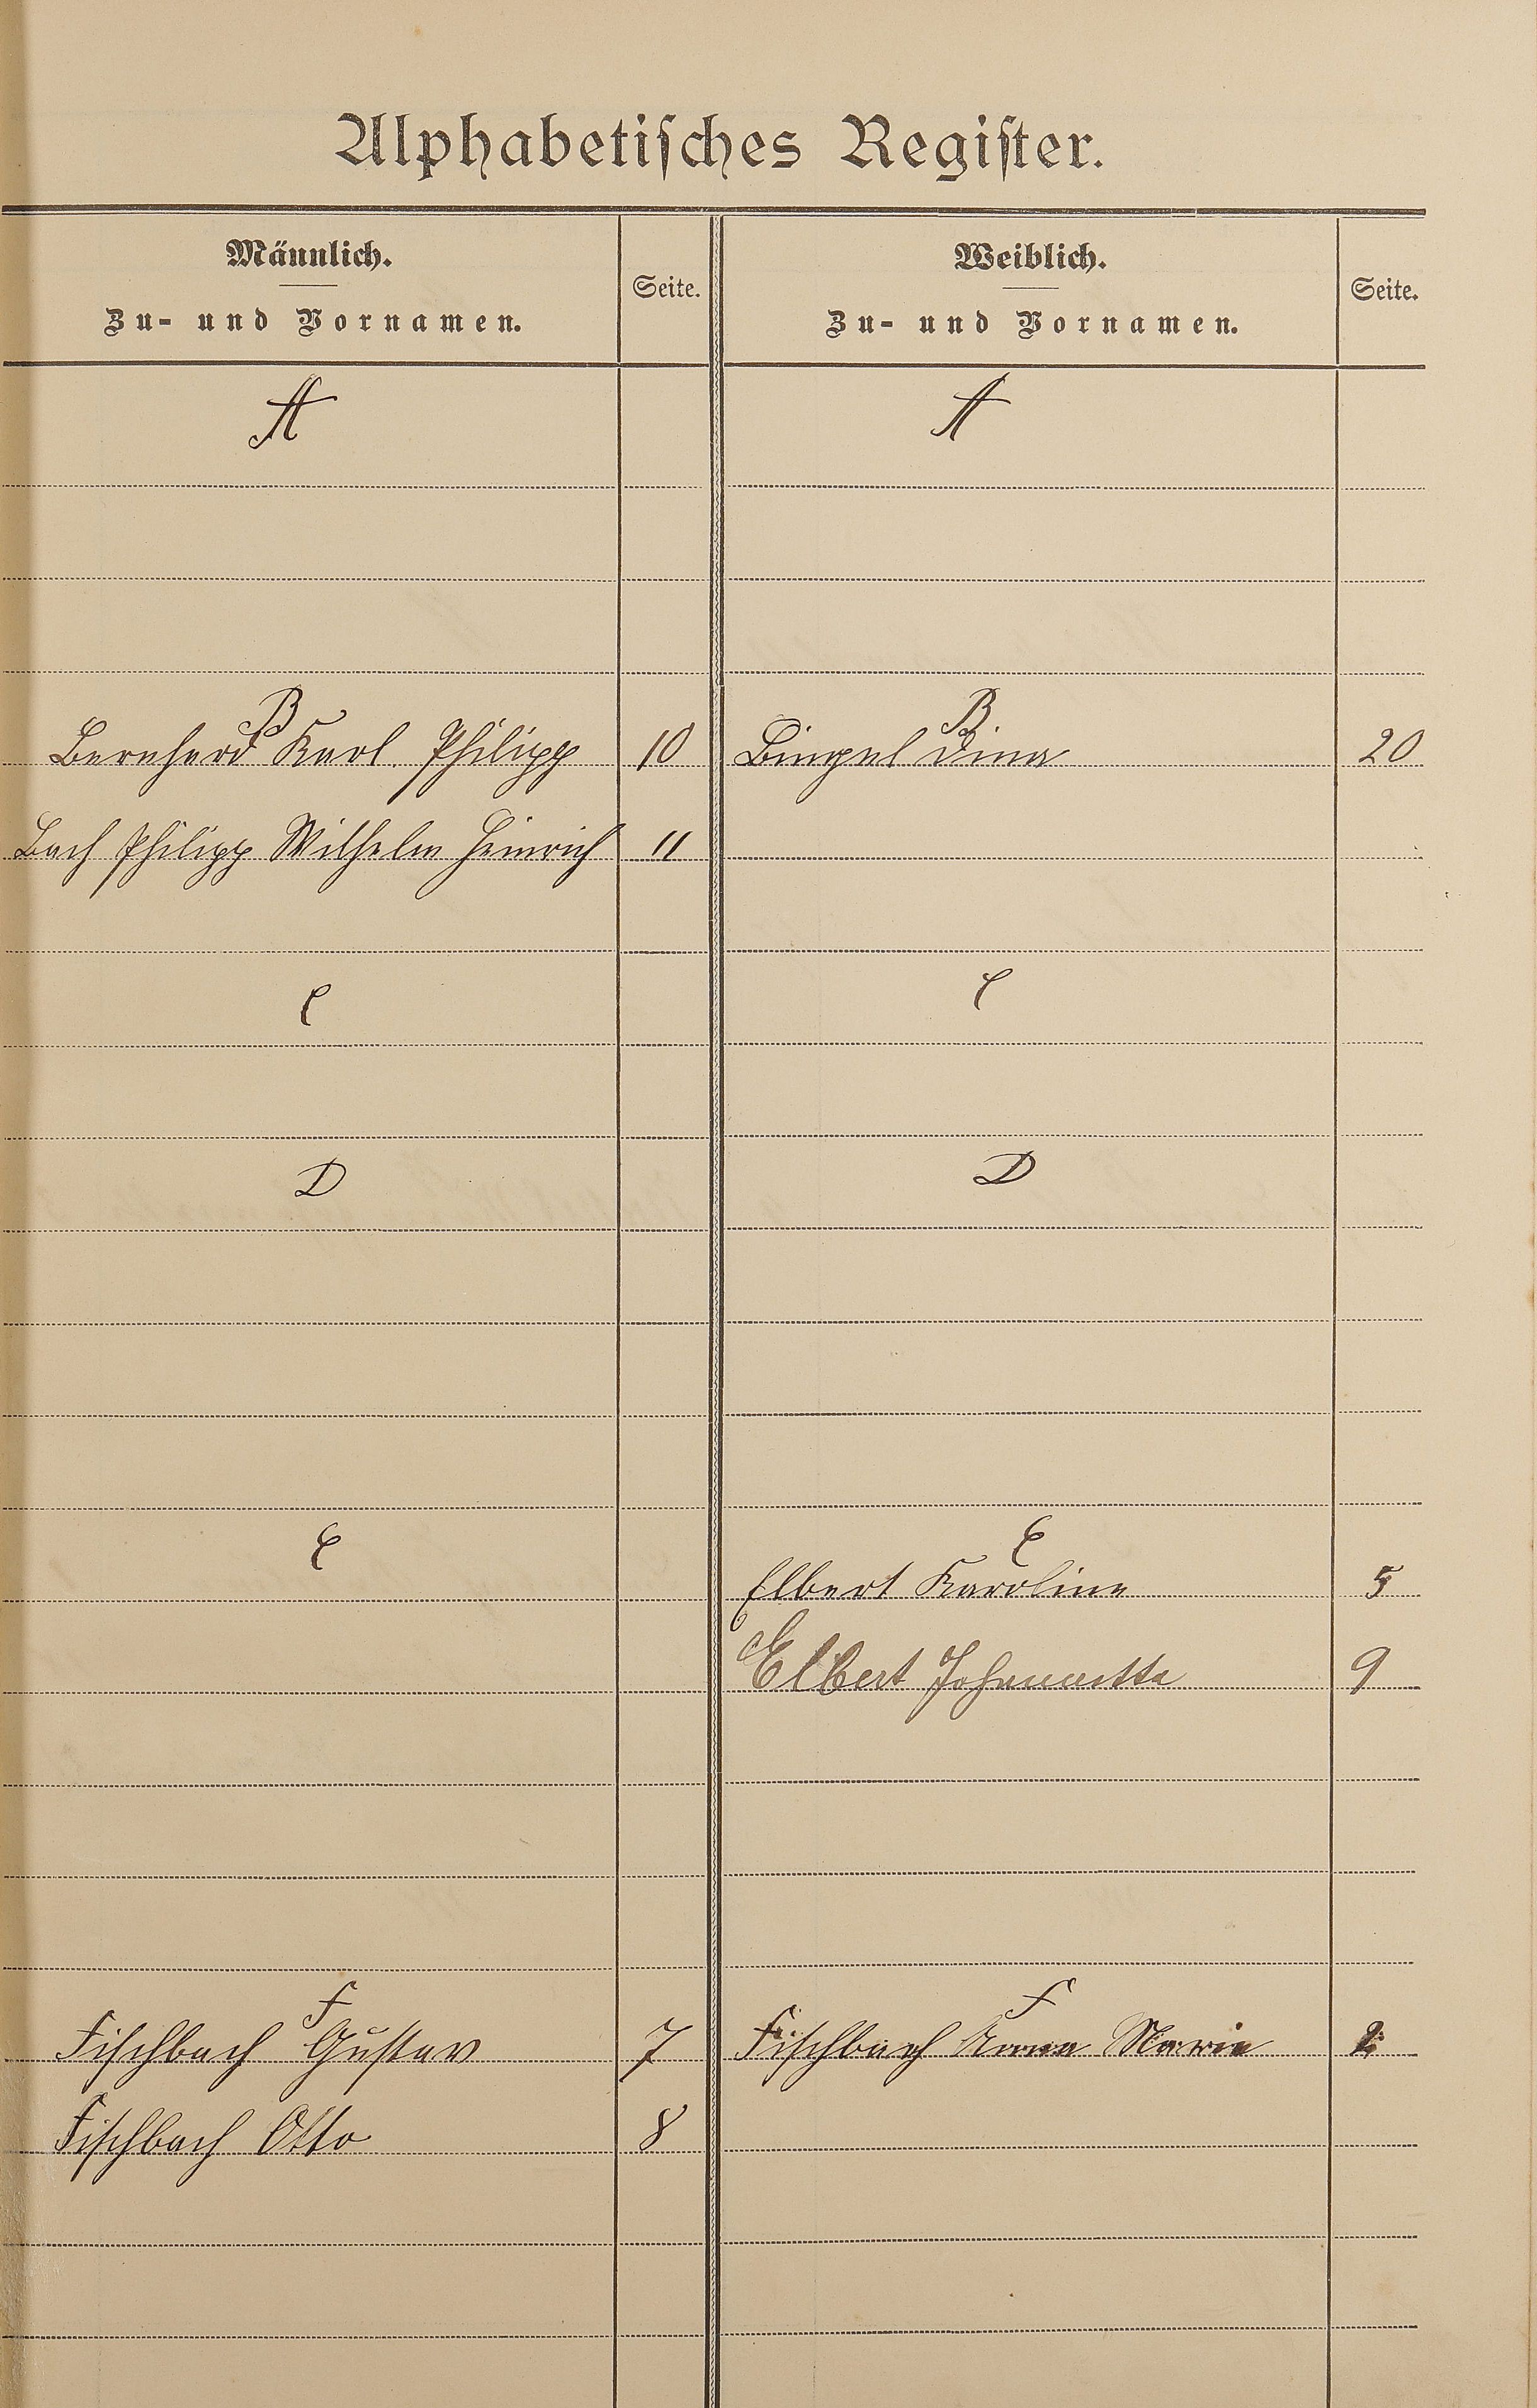 Alphabetisches Register.
Männlich.
Zu- und Vornamen.
Seite.
Weiblich.
Zu- und Vornamen.
Seite.
A
A
B
B.
Bernhard Karl Philipp 10
Bingel Dina 20
Bach Philipp Wilhelm Heinrich 11
C
C
D
D
E
E
Elbert Karoline 5
Elbert Johannetta 9
F
F
Fischbach Gustav 7
Fischbach Anna Maria 2
Fischbach Otto 8